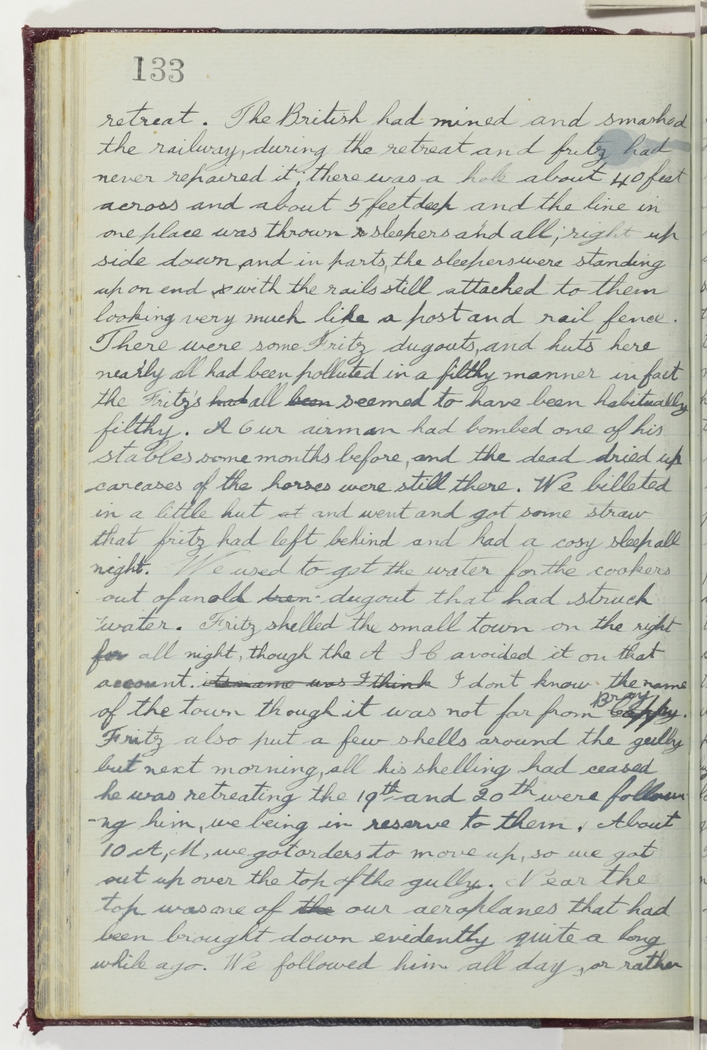 133
retreat. The British had mined and smashed
the railway, during the retreat and fritz had
never repaired it, there was a hole about 40 feet
across and about 5 feet deep and the line in
one place was thrown & sleepers and all, right up
side down, and in parts, the sleepers were standing
up on end & with the rails still attached to them
looking very much like a post and rail fence.
There were some Fritz dugouts, and huts here
nearly all had been polluted in a filthy manner in fact
the Fritz's had all been seemed to have been habitually
filthy. A Our airman had bombed one of his
stables some months before, and the dead dried up
carcases of the horses were still there. We billeted
in a little hut at and went and got some straw
that fritz had left behind and had a cosy sleep all
night. We used to get the water for the cookers
out of an old dugout that had struck
water. Fritz shelled the small town on the right
for all night, though the A S C avoided it on that
account. its name was I think I don't know the name
of the town though it was not far from Bray Cappy.
Fritz also put a few shells around the gully
but next morning, all his shelling had ceased
he was retreating the 19th and 20th were follow
-ng him, we being in reserve to them. About
10 A, M, we got orders to move up, so we got
out up over the top of the gully. Near the
top was one of the our aeroplanes that had
been brought down evidently quite a long
while ago. We followed him all day, or rather